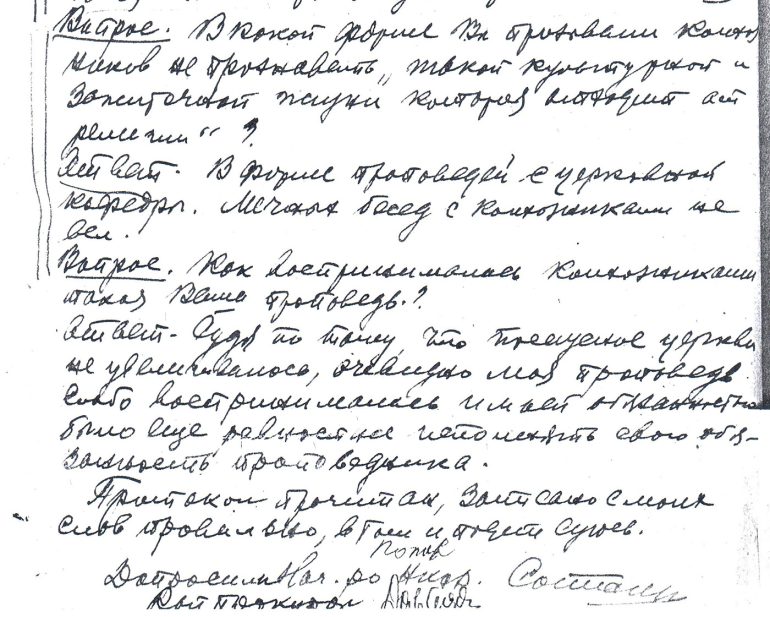 Вопрос. В какой форме Вы призывали колхоз
ников не признавать „такой культурной и
зажиточной жизни которая отводит от
религии" ?
Ответ. В форме проповедей с церковной
кафедры. Личных бесед с колхозниками не
вел.
Вопрос. Как воспринималась колхозниками
такая Ваша проповедь.?
Ответ- Судя по тому, что посещение церкви
не увеличивалось, очевидно моя проповедь
слабо воспринималась и моей обязанностью
было еще ревностнее исполнять свою обя-
занность проповедника.
Протокол прочитан, записано с моих
слов правильно, в том и подпи суюсь.
Попов
Допросили Нач. ро Нкв.